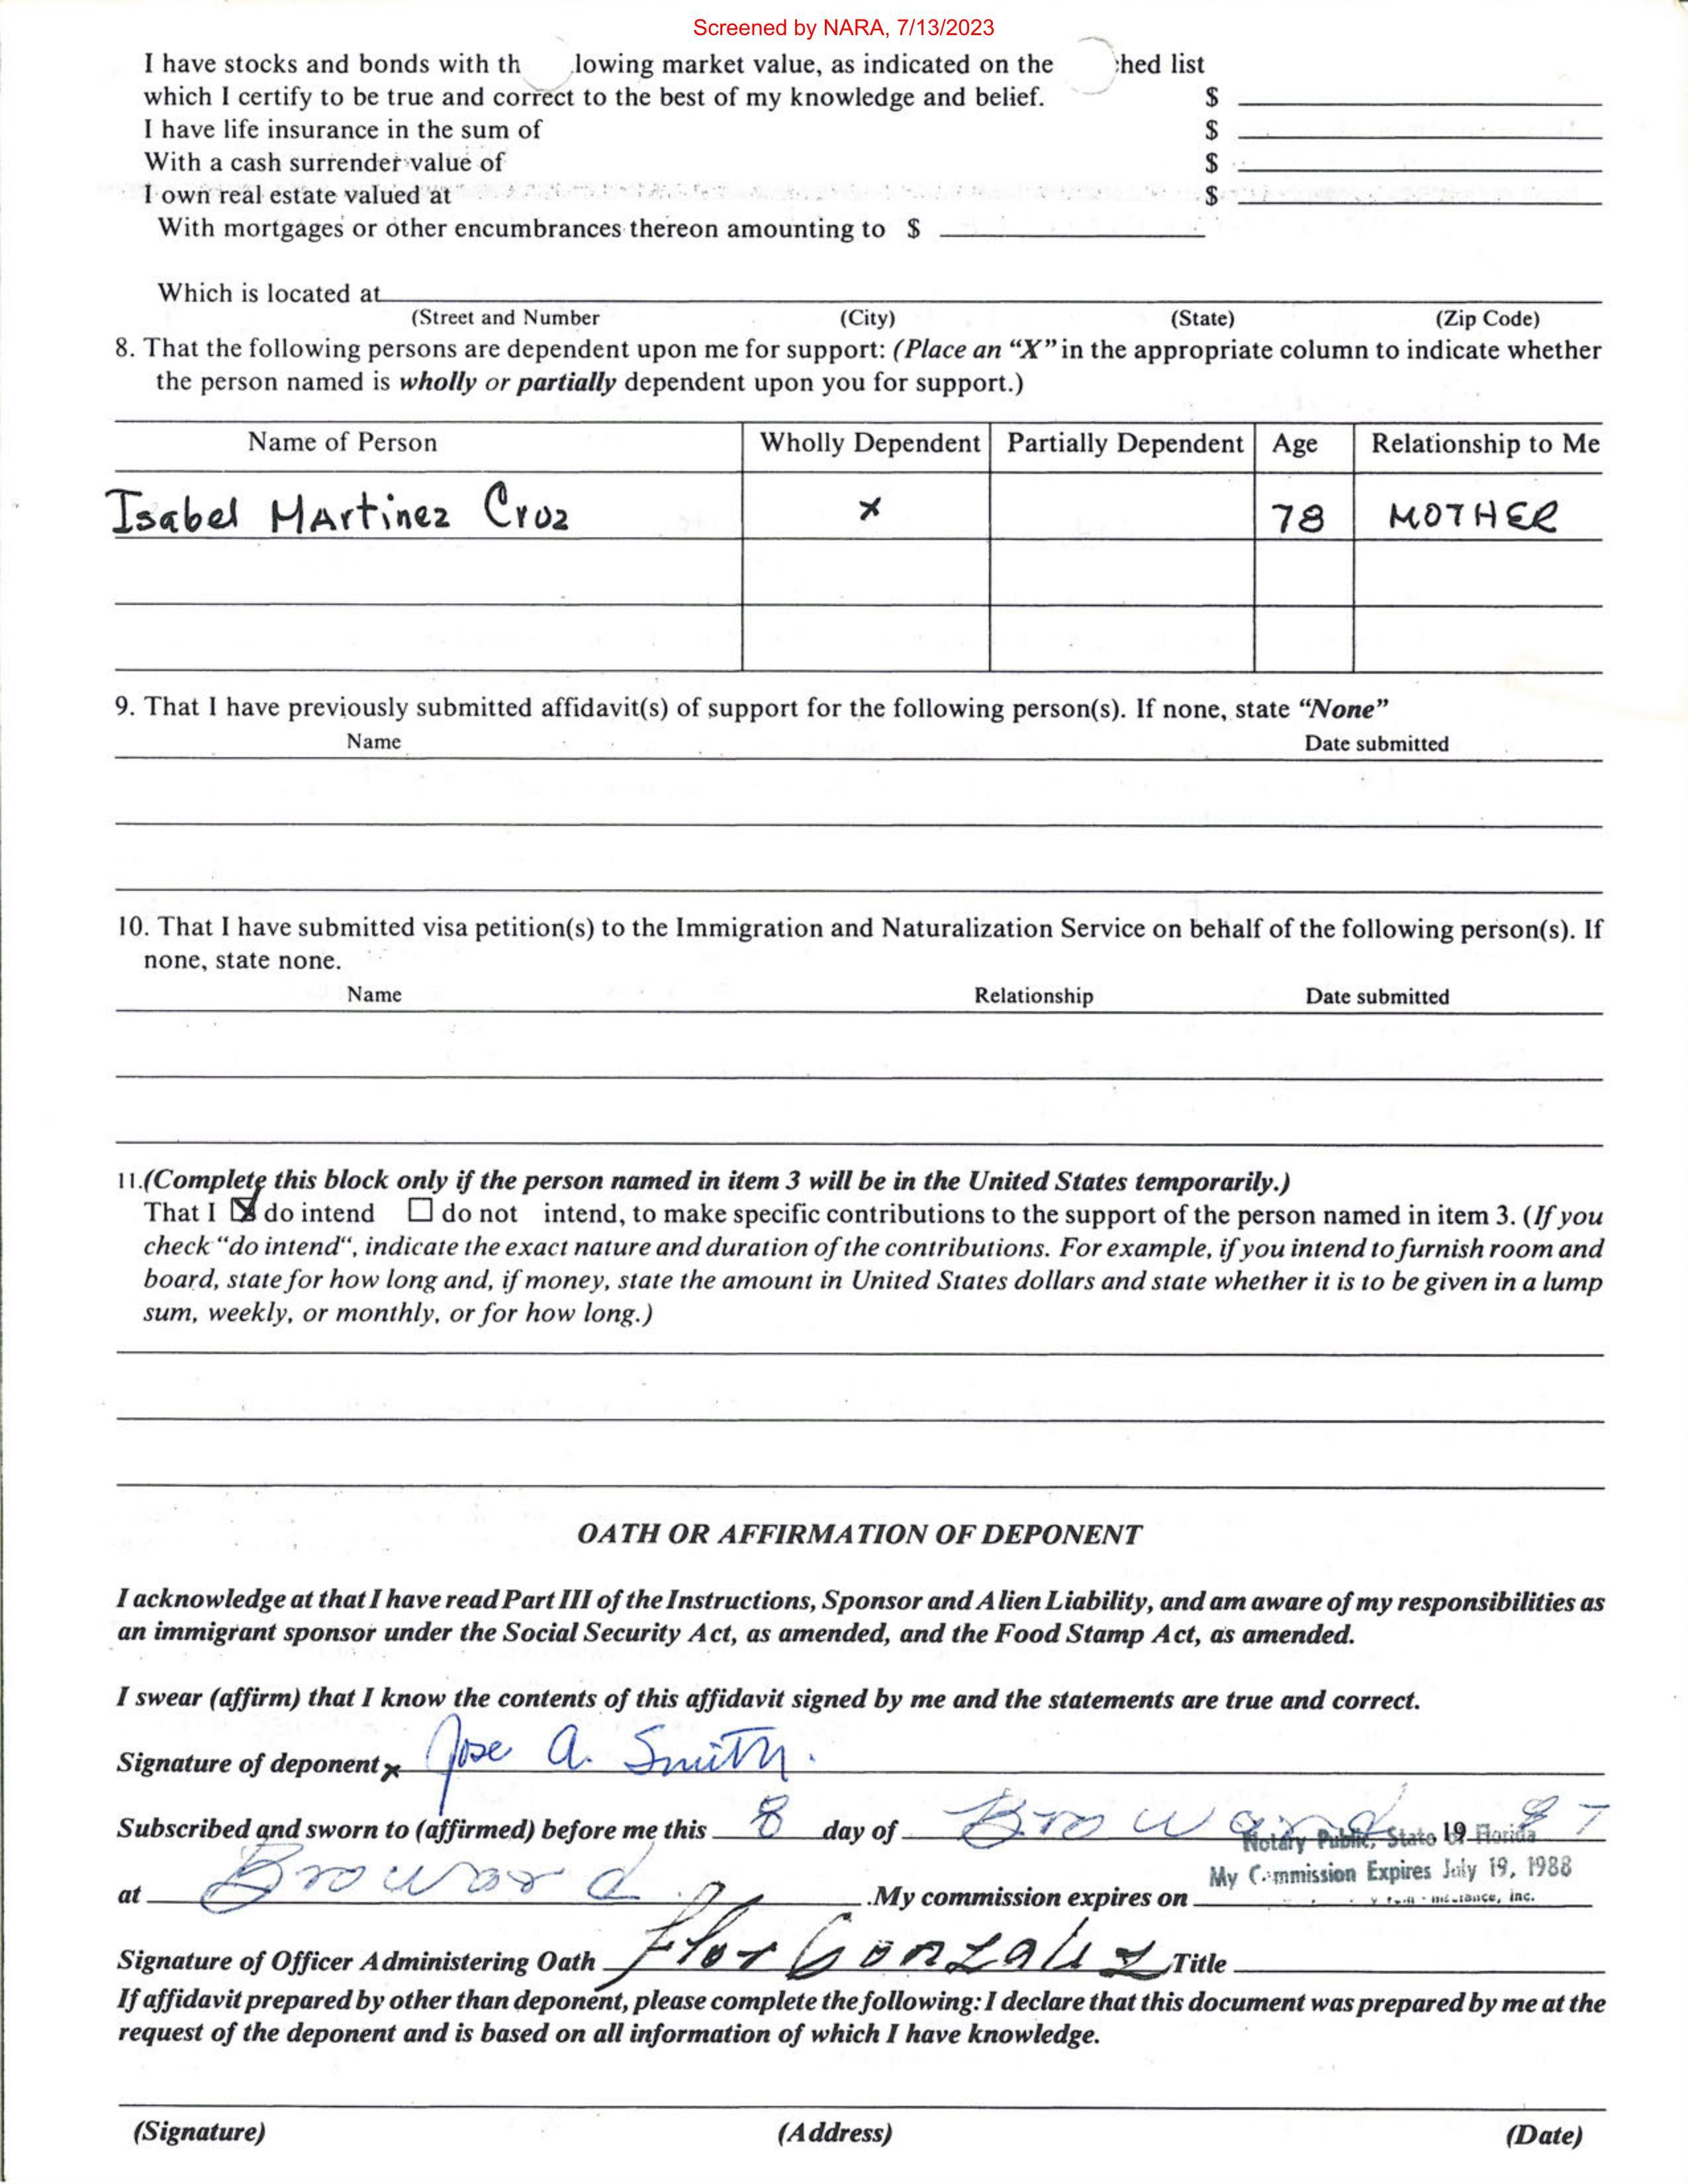 Screened by NARA, 7/13/2023
I have stocks and bonds with th lowing market value, as indicated on the hed list
which I certify to be true and correct to the best of my knowledge and belief. $
I have life insurance in the sum of $
With a cash surrender value of $
I own real estate valued at $
With mortgages or other encumbrances thereon amounting to $
Which is located at
(Street and Number (City) (State) (Zip Code)
8. That the following persons are dependent upon me for support: (Place an “X” in the appropriate column to indicate whether
the person named is wholly or partially dependent upon you for support.)
Name of Person Wholly Dependent Partially Dependent Age Relationship to Me
Isabel MArtinez Cruz x 78 MOTHER
9. That I have previously submitted affidavit(s) of support for the following person(s). If none, state “None”
Name Date submitted
10. That I have submitted visa petition(s) to the Immigration and Naturalization Service on behalf of the following person(s). If
none, state none.
Name Relationship Date submitted
11.(Complete this block only if the person named in item 3 will be in the United States temporarily.)
That I ☒ do intend ☐ do not intend, to make specific contributions to the support of the person named in item 3. (If you
check “do intend“, indicate the exact nature and duration of the contributions. For example, if you intend to furnish room and
board, state for how long and, if money, state the amount in United States dollars and state whether it is to be given in a lump
sum, weekly, or monthly, or for how long.)
OATH OR AFFIRMATION OF DEPONENT
I acknowledge at that I have read Part III of the Instructions, Sponsor and Alien Liability, and am aware of my responsibilities as
an immigrant sponsor under the Social Security Act, as amended, and the Food Stamp Act, as amended.
I swear (affirm) that I know the contents of this affidavit signed by me and the statements are true and correct.
Signature of deponent x Jose A. Smith.
Subscribed and sworn to (affirmed) before me this 8 day of Broward 19 87
Notary Public, State of Florida
My Commission Expires July 19, 1988
at Broward .My commission expires on
Signature of Officer Administering Oath Flor Gonzalez Title
If affidavit prepared by other than deponent, please complete the following: I declare that this document was prepared by me at the
request of the deponent and is based on all information of which I have knowledge.
(Signature) (Address) (Date)